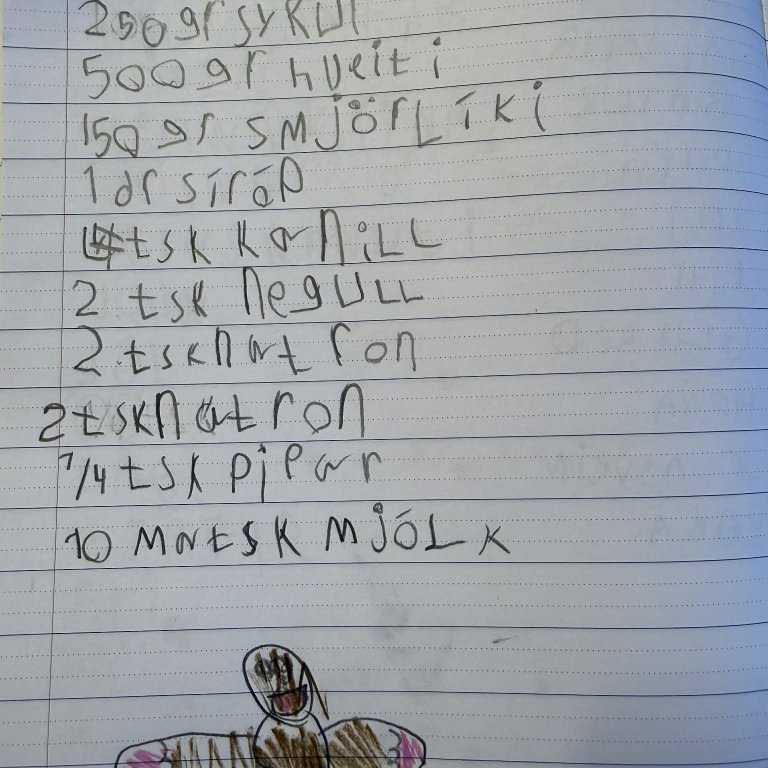 250 gr sykur
500 gr hveiti
150 gr smjörlíki
1 dl síróp
4 tsk kanill
2 tsk negull
2 tsk natron
2 tsk natron
1/4 tsk pipar
10 matsk mjólk